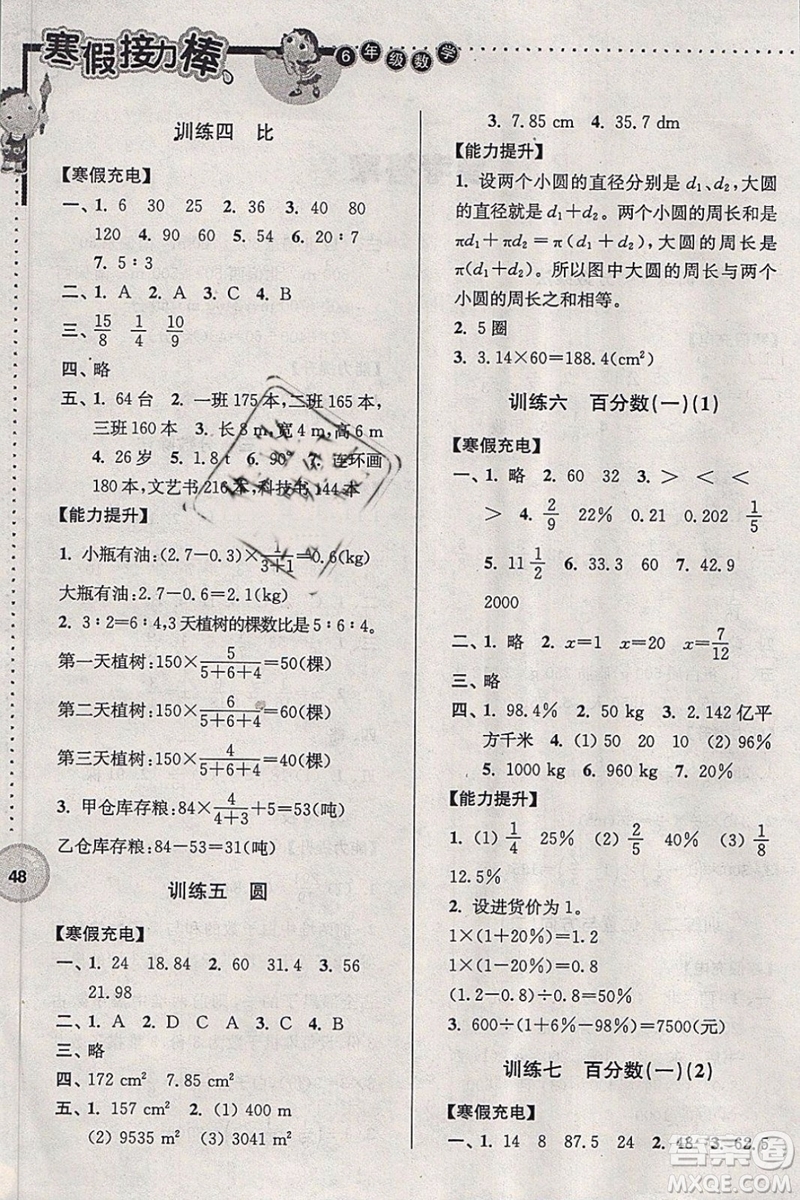 寒假接力棒
6年级数学
训练四 比
【寒假充电】
一、1. 6 30 25 2. 36 3. 40 80
120 4. 90 60 5. 54 6. 20∶7
7. 5∶3
二、1. A 2. A 3. C 4. B
三、15/8 1/4 10/9
四、略
五、1. 64 台 2. 一班 175 本,二班 165 本,
三班 160 本 3. 长 8 m,宽 4 m,高 6 m
4. 26 岁 5. 1.8 t 6. 90° 7. 连环画
180 本,文艺书 216 本,科技书 144 本
【能力提升】
1. 小瓶有油:(2.7－0.3)×1/(3+1)=0.6(kg)
大瓶有油:2.7－0.6=2.1(kg)
2. 3∶2=6∶4,3 天植树的棵数比是 5∶6∶4。
第一天植树:150×5/(5+6+4)=50(棵)
第二天植树:150×6/(5+6+4)=60(棵)
第三天植树:150×4/(5+6+4)=40(棵)
3. 甲仓库存粮:84×4/(4+3)+5=53(吨)
乙仓库存粮:84－53=31(吨)
48
训练五 圆
【寒假充电】
一、1. 24 18.84 2. 60 31.4 3. 56
21.98
二、1. A 2. D C A 3. A 4. C
三、略
四、172 cm² 7.85 cm²
五、1. 157 cm² 2. (1) 400 m
(2) 9535 m² (3) 3041 m²
3. 7.85 cm 4. 35.7 dm
【能力提升】
1. 设两个小圆的直径分别是 d₁、d₂,大圆
的直径就是 d₁+d₂。两个小圆的周长是
πd₁+πd₂=π(d₁+d₂),大圆的周长是
π(d₁+d₂)。所以图中大圆的周长与两个
小圆的周长之和相等。
2. 5 圈
3. 3.14×60=188.4(cm²)
训练六 百分数(一)(1)
【寒假充电】
一、1. 略 2. 60 32 3. > < <
> 4. 2/9 22% 0.21 0.202 1/5
5. 11 1/2 6. 33.3 60 7. 42.9
2000
二、1. 略 2. x=1 x=20 x=7/12
三、略
四、1. 98.4% 2. 50 kg 3. 2.142 亿平
方千米 4. (1) 50 20 10 (2) 96%
5. 1000 kg 6. 960 kg 7. 62%
【能力提升】
1. (1) 1/4 25% (2) 40% (3) 1/8
12.5%
2. 设进货价为 1。
1×(1+20%)=1.2
1×(1－20%)=0.8
(1.2－0.8)÷0.8=50%
3. 600÷(1+6%－98%)=7500(元)
训练七 百分数(一)(2)
【寒假充电】
一、1. 14 8 87.5 24 2. 48 3. 62.5
答案圈
MXQE.COM